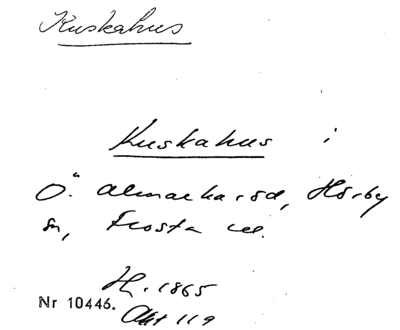 Kuskahus
Kuskahus i
Ö. Almarkaröd, Hörby
sn, Frosta hd.
H. 1865
Nr 10446.
Akt 119